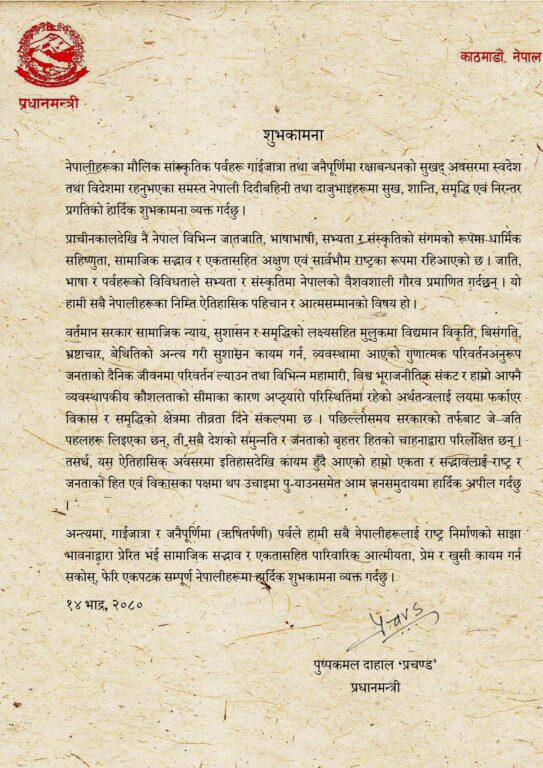 प्रधानमन्त्री
काठमाडौं, नेपाल
शुभकामना
नेपालीहरूका मौलिक सांस्कृतिक पर्वहरू गाईजात्रा तथा जनैपूर्णिमा रक्षाबन्धनको सुखद् अवसरमा स्वदेश
तथा विदेशमा रहनुभएका समस्त नेपाली दिदीबहिनी तथा दाजुभाइहरूमा सुख, शान्ति, समृद्धि एवं निरन्तर
प्रगतिको हार्दिक शुभकामना व्यक्त गर्दछु ।
प्राचीनकालदेखि नै नेपाल विभिन्न जातजाति, भाषाभाषी, सभ्यता र संस्कृतिको संगमको रूपमा धार्मिक
सहिष्णुता, सामाजिक सद्भाव र एकतासहित अक्षुण एवं सार्वभौम राष्ट्रका रूपमा रहिआएको छ । जाति,
भाषा र पर्वहरूको विविधताले सभ्यता र संस्कृतिमा नेपालको वैशवशाली गौरव प्रमाणित गर्दछन् । यो
हामी सबै नेपालीहरूका निम्ति ऐतिहासिक पहिचान र आत्मसम्मानको विषय हो ।
वर्तमान सरकार सामाजिक न्याय, सुशासन र समृद्धिको लक्ष्यसहित मुलुकमा विद्यमान विकृति, बिसंगति,
भ्रष्टाचार, बेथितिको अन्त्य गरी सुशासन कायम गर्न, व्यवस्थामा आएको गुणात्मक परिवर्तनअनुरूप
जनताको दैनिक जीवनमा परिवर्तन ल्याउन तथा विभिन्न महामारी, विश्व भूराजनीतिक संकट र हाम्रो आफ्नै
व्यवस्थापकीय कौशलताको सीमाका कारण अप्ठ्यारो परिस्थितिमा रहेको अर्थतन्त्रलाई लयमा फर्काएर
विकास र समृद्धिको क्षेत्रमा तीव्रता दिने संकल्पमा छ । पछिल्लोसमय सरकारको तर्फबाट जे–जति
पहलहरू लिइएका छन्, ती सबै देशको समुन्नति र जनताको बृहत्तर हितको चाहनाद्वारा परिलक्षित छन् ।
तसर्थ, यस ऐतिहासिक अवसरमा इतिहासदेखि कायम हुँदै आएको हाम्रो एकता र सद्भावलाई राष्ट्र र
जनताको हित एवं विकासका पक्षमा थप उचाइमा पु-याउनसमेत आम जनसमुदायमा हार्दिक अपील गर्दछु
।
अन्त्यमा, गाईजात्रा र जनैपूर्णिमा (ऋषितर्पणी) पर्वले हामी सबै नेपालीहरूलाई राष्ट्र निर्माणको साझा
भावनाद्वारा प्रेरित भई सामाजिक सद्भाव र एकतासहित पारिवारिक आत्मीयता, प्रेम र खुसी कायम गर्न
सकोस्, फेरि एकपटक सम्पूर्ण नेपालीहरूमा हार्दिक शुभकामना व्यक्त गर्दछु ।
१४ भाद्र, २०८०
पुष्पकमल दाहाल ‘प्रचण्ड’
प्रधानमन्त्री